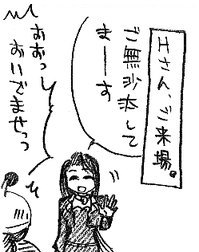 Hさん、ご来場。
ご無沙汰して
まーす
おおっし
おいでませっっ